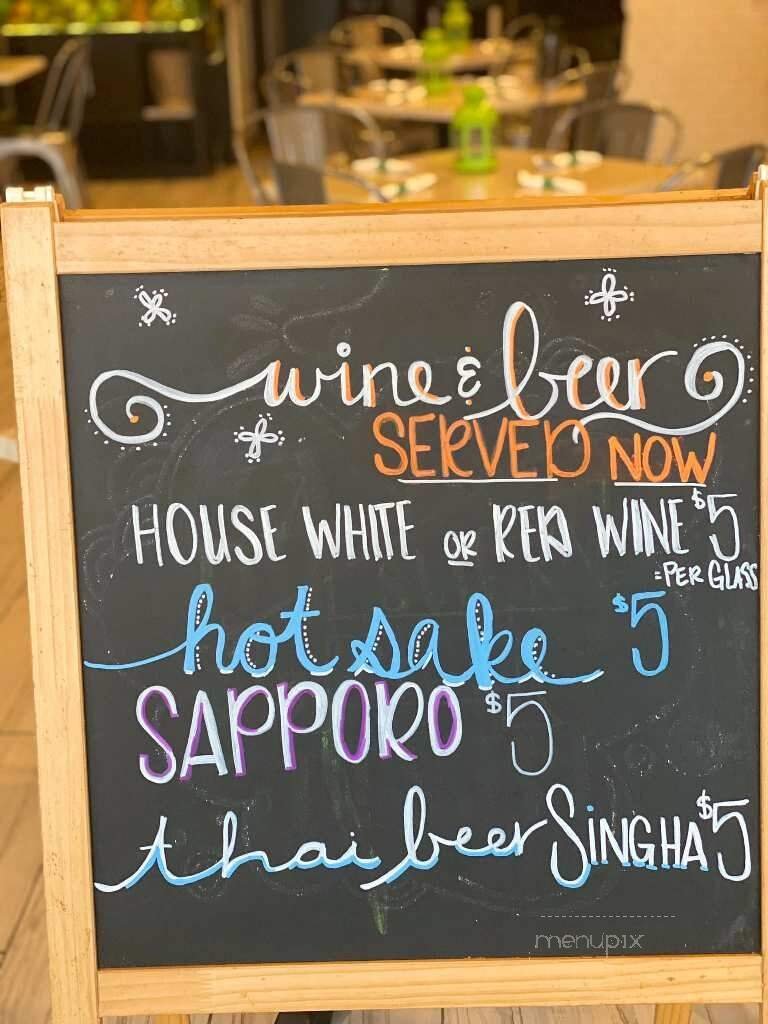 wine & beer
SERVED NOW
HOUSE WHITE OR RED WINE $5
=PER GLASS
hot sake $5
SAPPORO $5
thai beer SINGHA $5
menupix